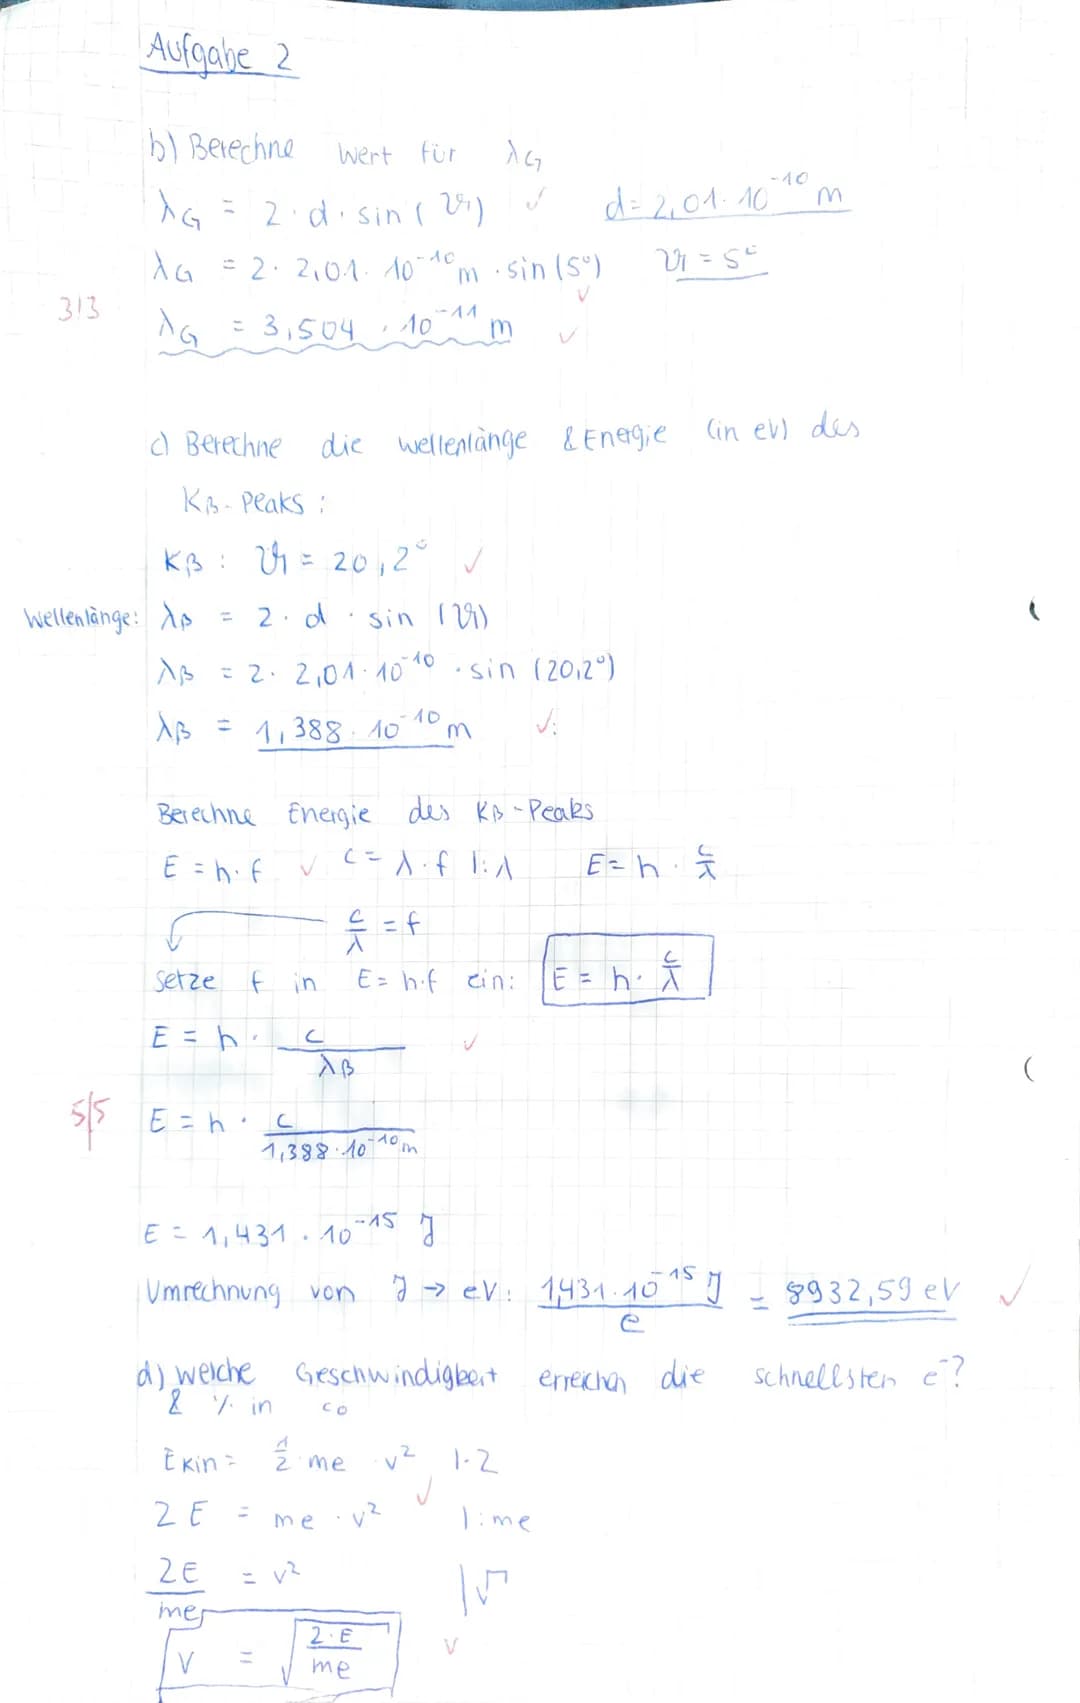 Aufgabe 2
b) Berechne Wert für λG
λG = 2 · d · sin (ϑ) ✓ d = 2,01 · 10⁻¹⁰ m
λG = 2 · 2,01 · 10⁻¹⁰ m · sin (5°) ϑ = 5°
✓
3/3 λG = 3,504 · 10⁻¹¹ m ✓
c) Berechne die Wellenlänge & Energie (in eV) des
Kβ - Peaks :
Kβ : ϑ = 20,2° ✓
Wellenlänge: λβ = 2 · d · sin (ϑ)
λβ = 2 · 2,01 · 10⁻¹⁰ · sin (20,2°)
λβ = 1,388 · 10⁻¹⁰ m ✓
Berechne Energie des Kβ - Peaks
E = h · f ✓ c = λ · f |: λ E = h · c/λ
c/λ = f
Setze f in E = h·f ein: E = h · c/λ
E = h · c/λβ ✓
5/5 E = h · c/1,388 · 10⁻¹⁰ m
E = 1,431 · 10⁻¹⁵ J
Umrechnung von J → eV: 1,431 · 10⁻¹⁵ J/e = 8932,59 eV ✓
d) welche Geschwindigkeit erreichen die schnellsten e⁻?
& % in c₀
Ekin = 1/2 · me · v² |· 2
2 E = me · v² ✓ |: me
2E/me = v² |√
v = √(2·E/me) ✓